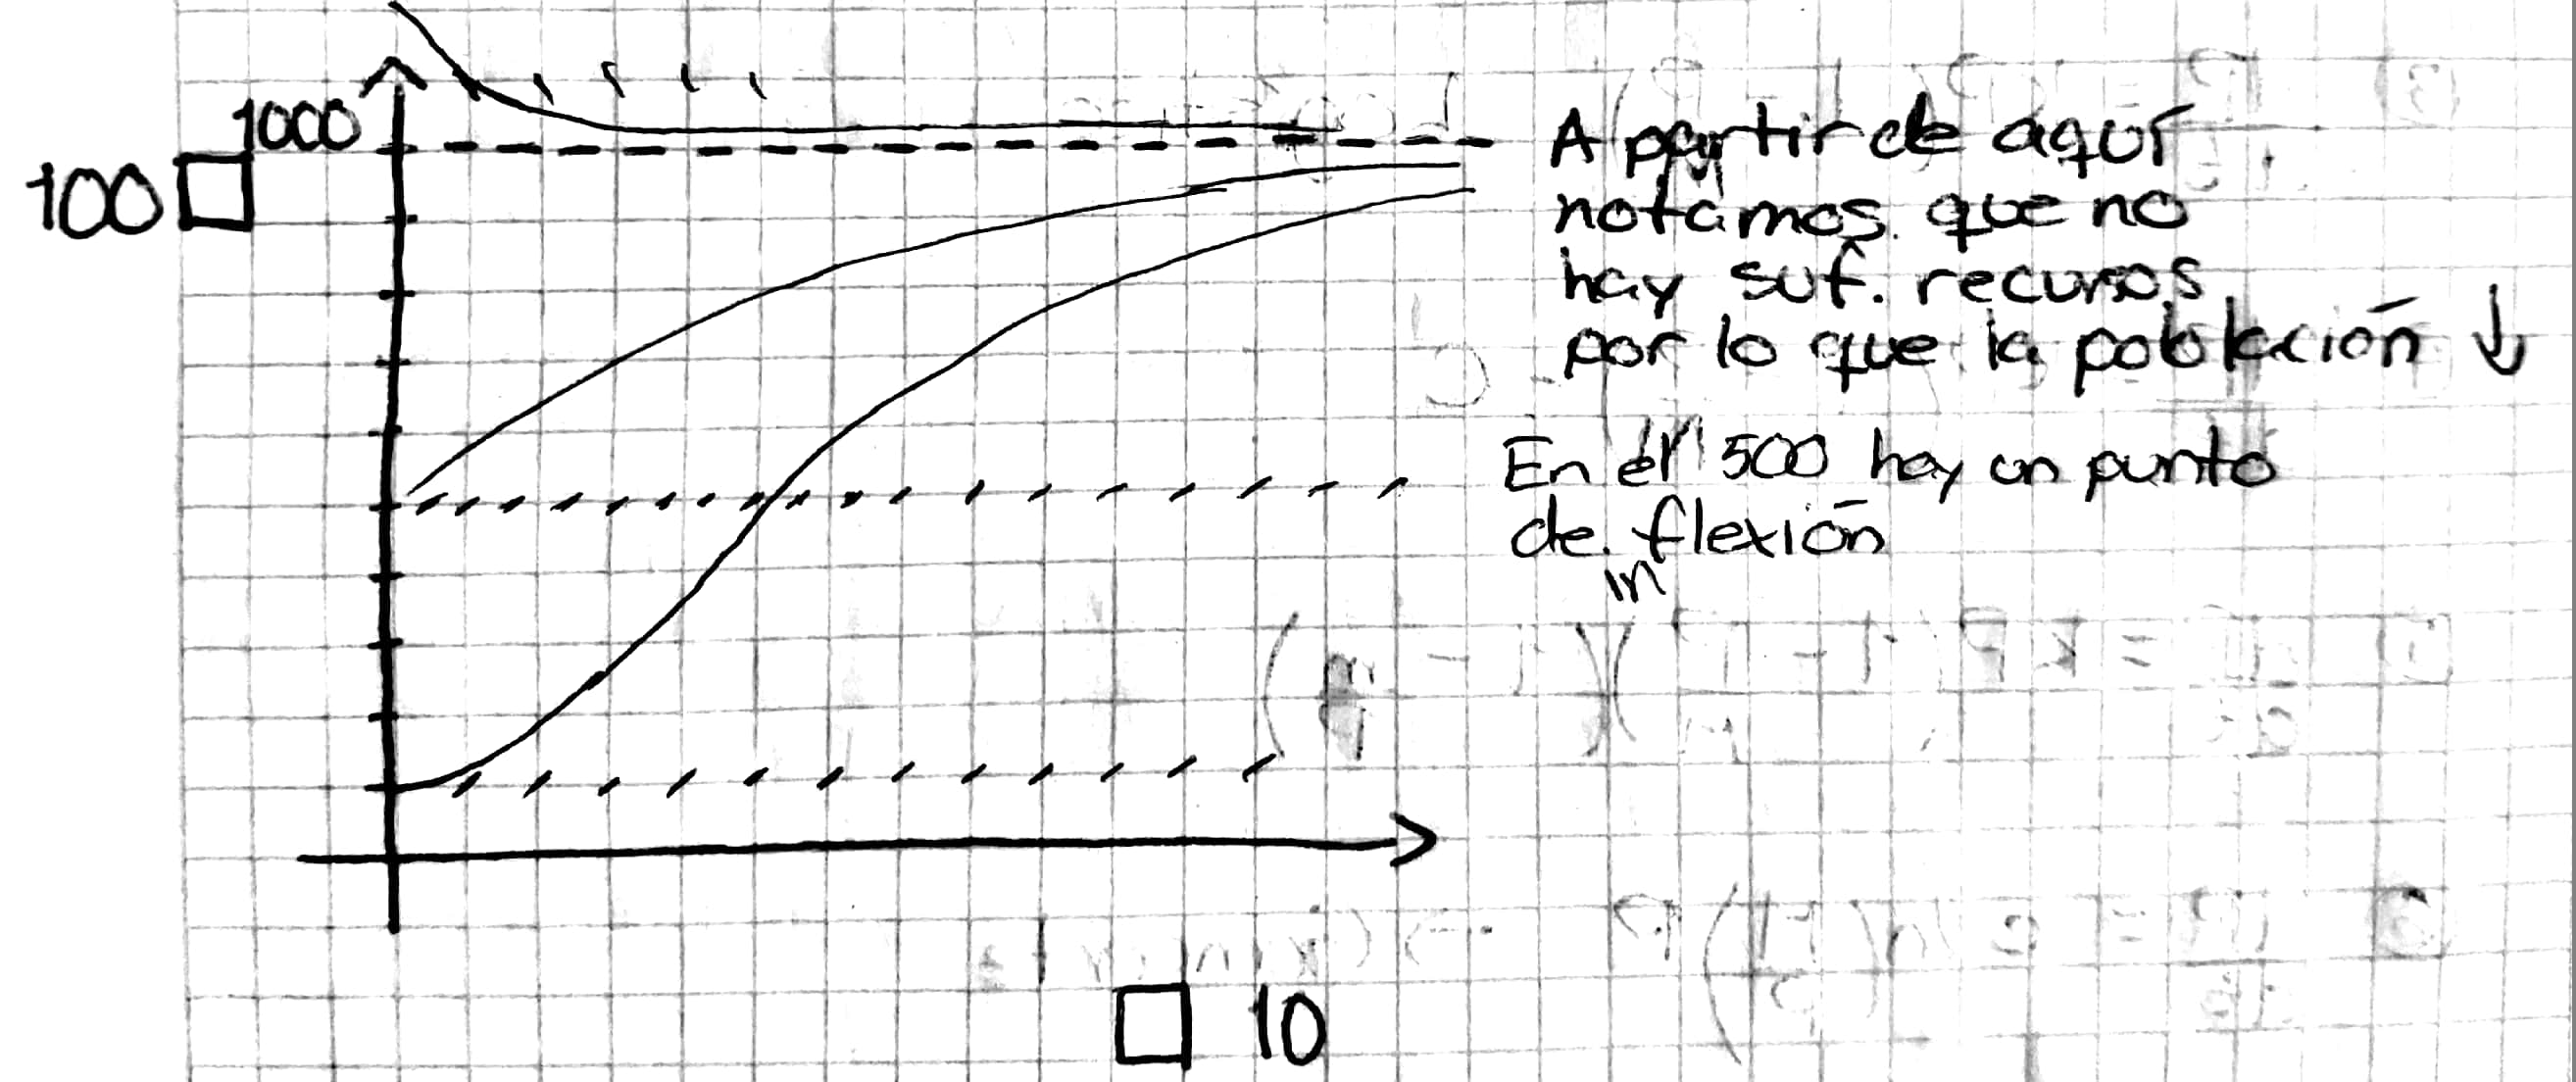 1000
100
A partir de aquí
notamos que no
hay suf. recursos
por lo que la población ↓
En el 500 hay un punto
de inflexión
10